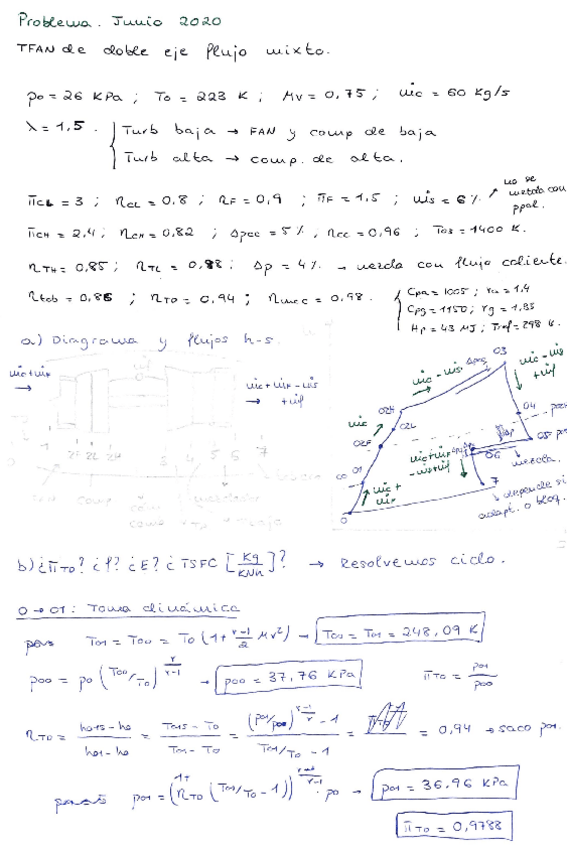 Problema. Junio 2020
TFAN de doble eje flujo mixto.
p0 = 26 KPa ; T0 = 223 K ; Mv = 0,75 ; ṁc = 60 Kg/s
λ = 1,5. { Turb baja → FAN y comp de baja
Turb alta → comp. de alta.
πCL = 3 ; ηCL = 0,8 ; ηF = 0,9 ; πF = 1,5 ; ṁs = 6 % ↗ no se mezcla con ppal.
πCH = 2,4 ; ηCH = 0,82 ; Δpcc = 5% ; ηcc = 0,96 ; T03 = 1400 K.
ηTH = 0,85 ; ηTL = 0,88 ; Δp = 4% → mezcla con flujo caliente.
ηtob = 0,86 ; ηTO = 0,94 ; ηmec = 0,98. { Cpa = 1005 ; γa = 1,4
Cpg = 1150 ; γg = 1,33
Hp = 43 MJ ; Tref = 298 K.
a) Diagrama y flujos h-s.
ṁc + ṁF →
→ ṁc + ṁF - ṁs + ṁf
1 2F 2L 2H 3 4 5 6 7
03
ṁc - ṁs
Δpcc
ṁc - ṁs + ṁf
02H
ṁc
02L
04
02F
05
06
mezcla.
00 01
ṁc + ṁF
7
depende si adapt. o bloq.
0
b) ¿πTO? ¿f? ¿E? ¿TSFC [Kg/KNh]? → Resolvemos ciclo.
0 → 01 : Toma dinámica
T01 = T00 = T0 (1 + γ-1/2 Mv²) → T00 = T01 = 248,09 K
p00 = p0 (T00/T0)^γ/γ-1 → p00 = 37,76 KPa πTO = p01/p00
ηTO = h01s - h0/h01 - h0 = T01s - T0/T01 - T0 = (p01/p0)^γ-1/γ - 1/T01/T0 - 1 = 0,94 → saco p01.
p01 = (1 + ηTO (T01/T0 - 1))^γ/γ-1 · p0 → p01 = 36,96 KPa
πTO = 0,9788